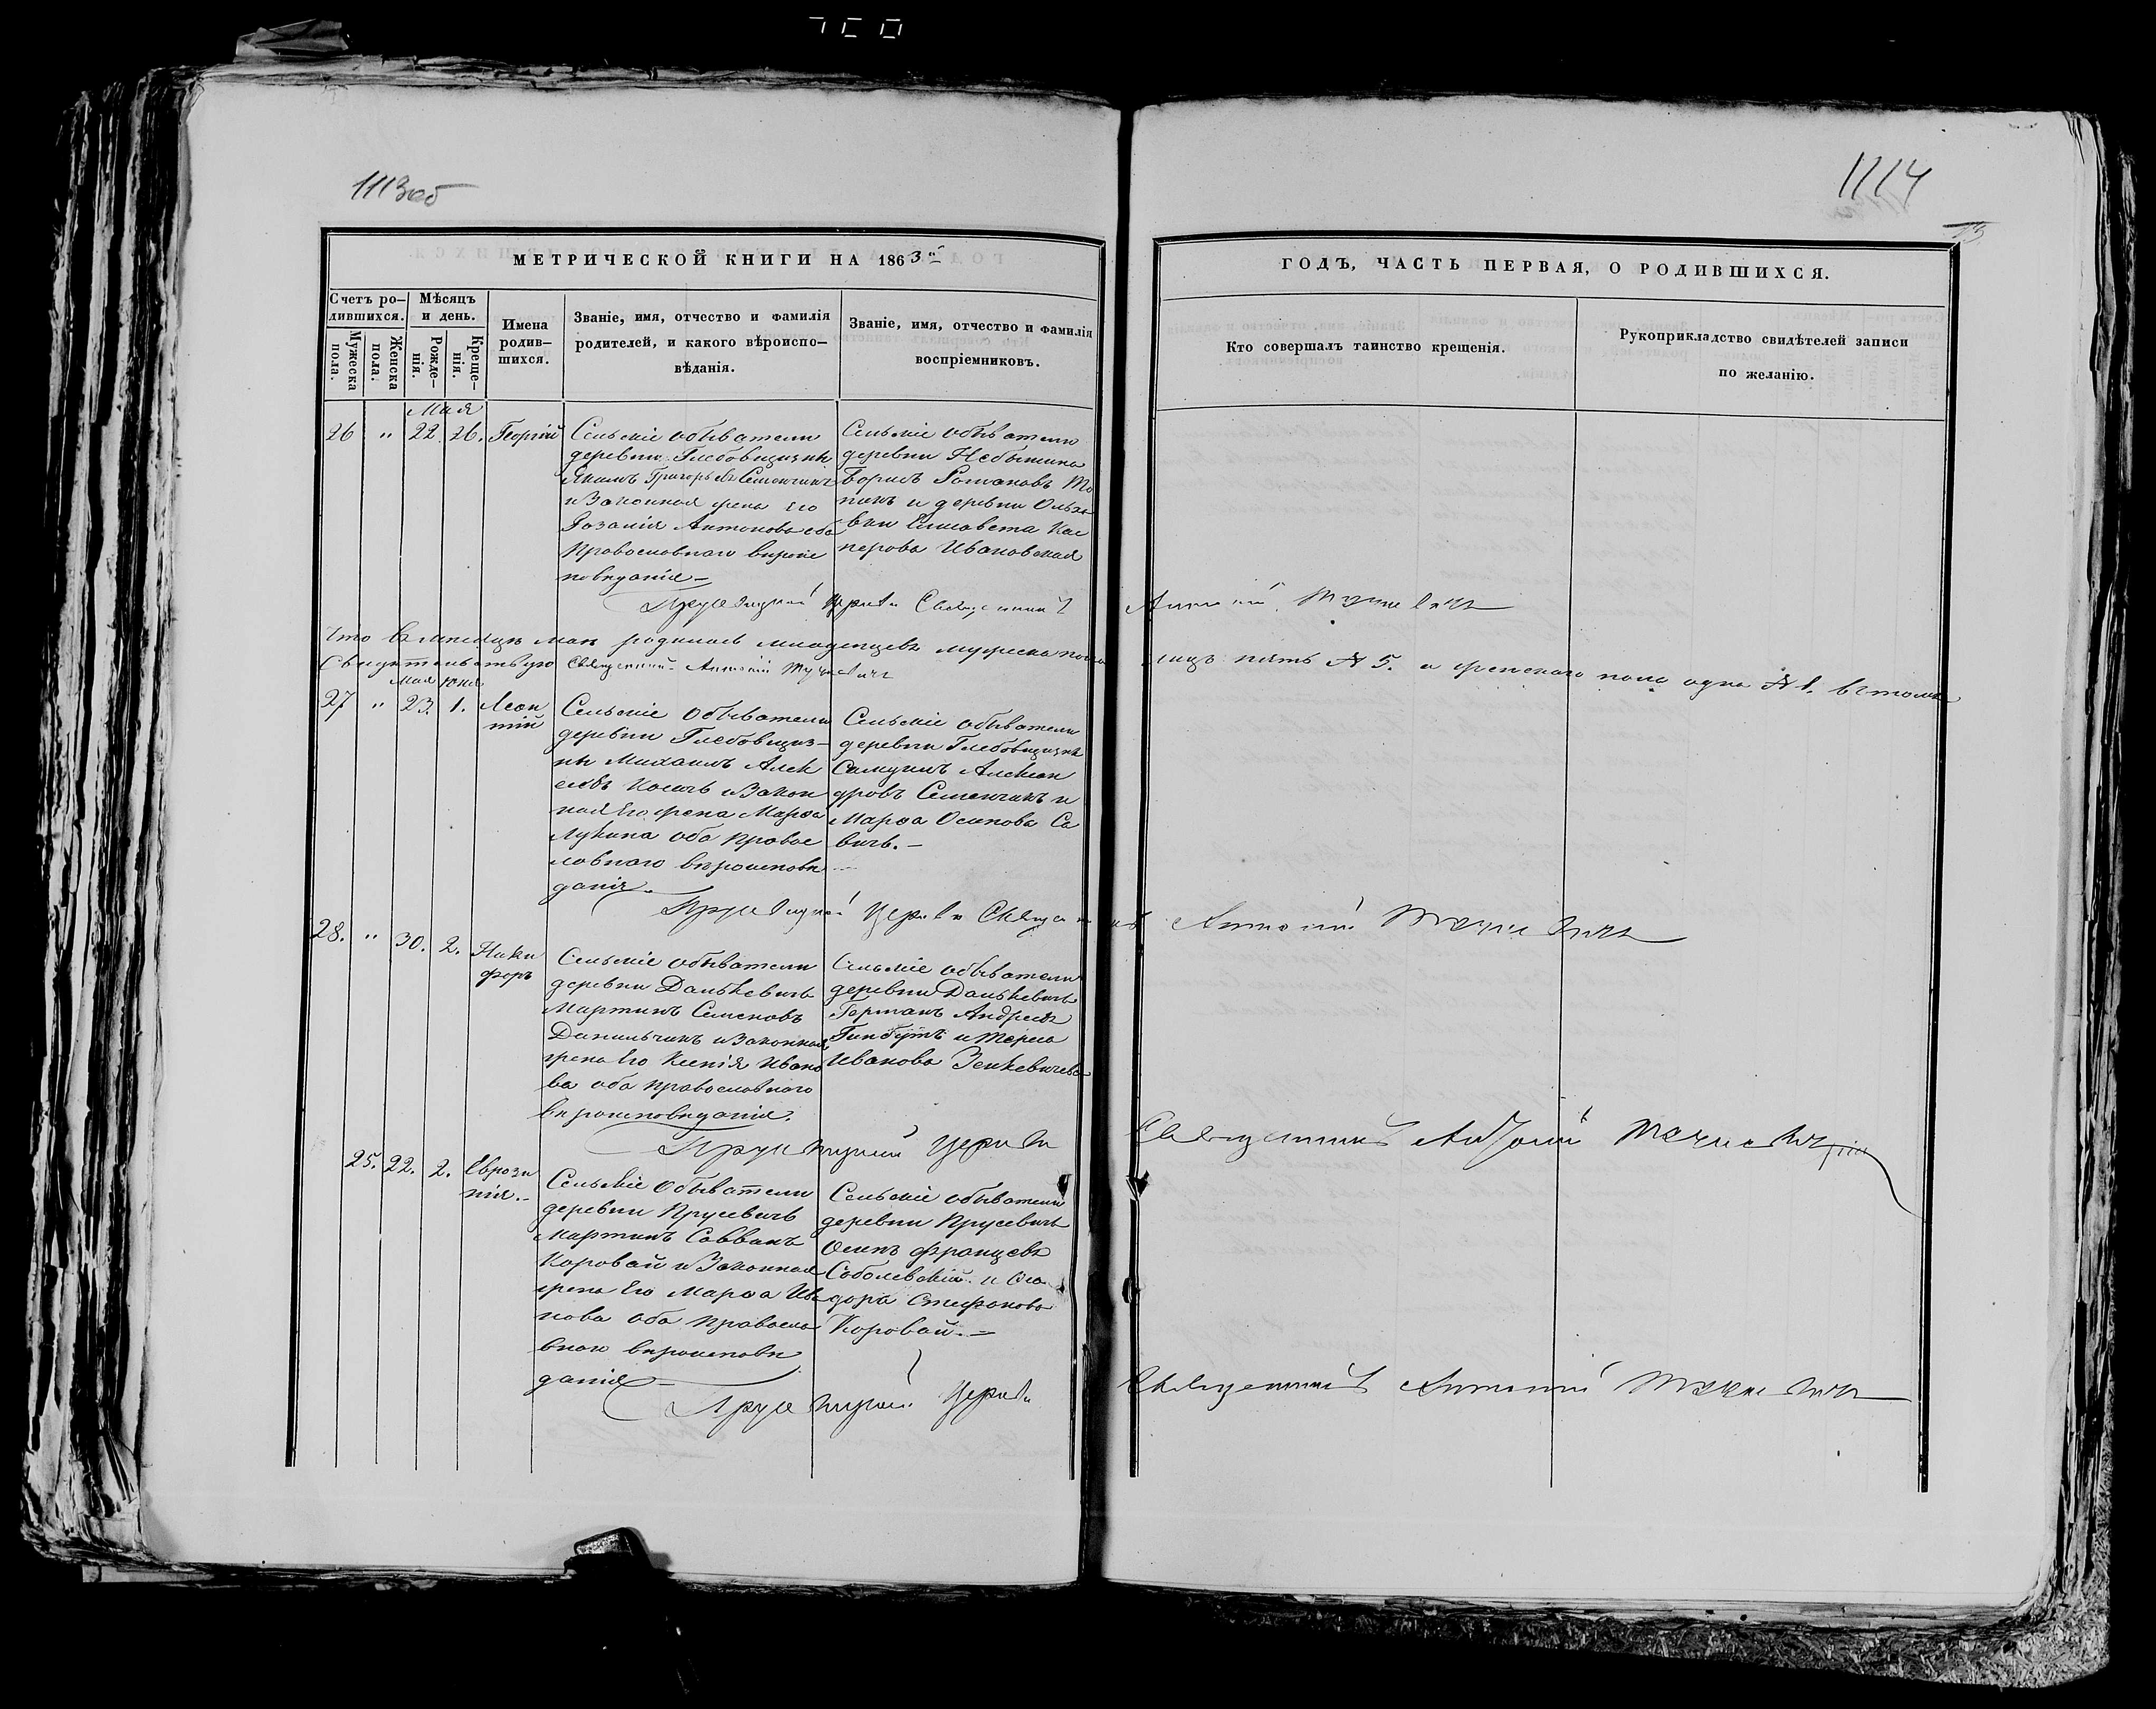 1113об
1114
МЕТРИЧЕСКОЙ КНИГИ НА 1863й
ГОДЪ, ЧАСТЬ ПЕРВАЯ, О РОДИВШИХСЯ.
Счетъ ро-
дившихся.
Мужеска
пола.
Женска
пола.
Мѣсяцъ
и день.
Рожде-
нія.
Креще-
нія.
Имена
родив-
шихся.
Званіе, имя, отчество и фамилія
родителей, и какого вѣроиспо-
вѣданія.
Званіе, имя, отчество и фамилія
воспріемниковъ.
Кто совершалъ таинство крещенія.
Рукоприкладство свидѣтелей записи
по желанію.
Мая
26 " 22. 26. Георгій
Сельскіе обыватели
деревни Глебовщизни
Якимъ Григорьевъ Семенчикъ
и Законная жена его
Розалія Антонова оба
Православнаго вѣроис
повѣданія
Сельскіе обыватели
деревни
Борисъ Романовъ То
никъ и деревни Ольхо
вки Елисавета Кас
перова Ивановская
Прусвицкой Церкви Священникъ Антоній
Что въ мѣсяцѣ маѣ родилось младенцевъ мужеска пола лицъ пять № 5. а женскаго пола одна № 1. въ томъ
Свидѣтельствую Священникъ Антоній
Мая Юня
27 " 23. 1. Леон
тій
Сельскіе обыватели
деревни Глебовщиз-
ни Михаилъ Алек
сѣевъ и Закон
ная Его жена Марѳа
Лукина оба Правос
лавнаго вѣроисповѣ
данія
Сельскіе обыватели
деревни Глебовщизни
Самуилъ Алексан
дровъ Семенчикъ и
Марѳа Осипова Са
вичъ.
Прусвицкой Церкви Священникъ Антоній
28. " 30. 2. Ники
форъ
Сельскіе обыватели
деревни Данькевичь
Мартинъ Семеновъ
Данильчикъ и Законная
жена Его Ксенія Ивано
ва оба Православнаго
вѣроисповѣданія.
Сельскіе обыватели
деревни Данькевичь
Германъ Андреевъ
Гинбутъ и Тереса
Иванова Зенкевичева
Церкви Священникъ Антоній
25. 22. 2. Еврози
нія.
Сельскіе обыватели
деревни Прусевичь
Мартинъ Саввинъ
Коровай и Законная
жена Его Марѳа Ива
нова оба Правосла
вного вѣроисповѣ
данія
Сельскіе обыватели
деревни Прусевичь
Осипъ Францевъ
Соболевскій и Ѳео
дора Стефанова
Коровай.
Церкви Священникъ Антоній